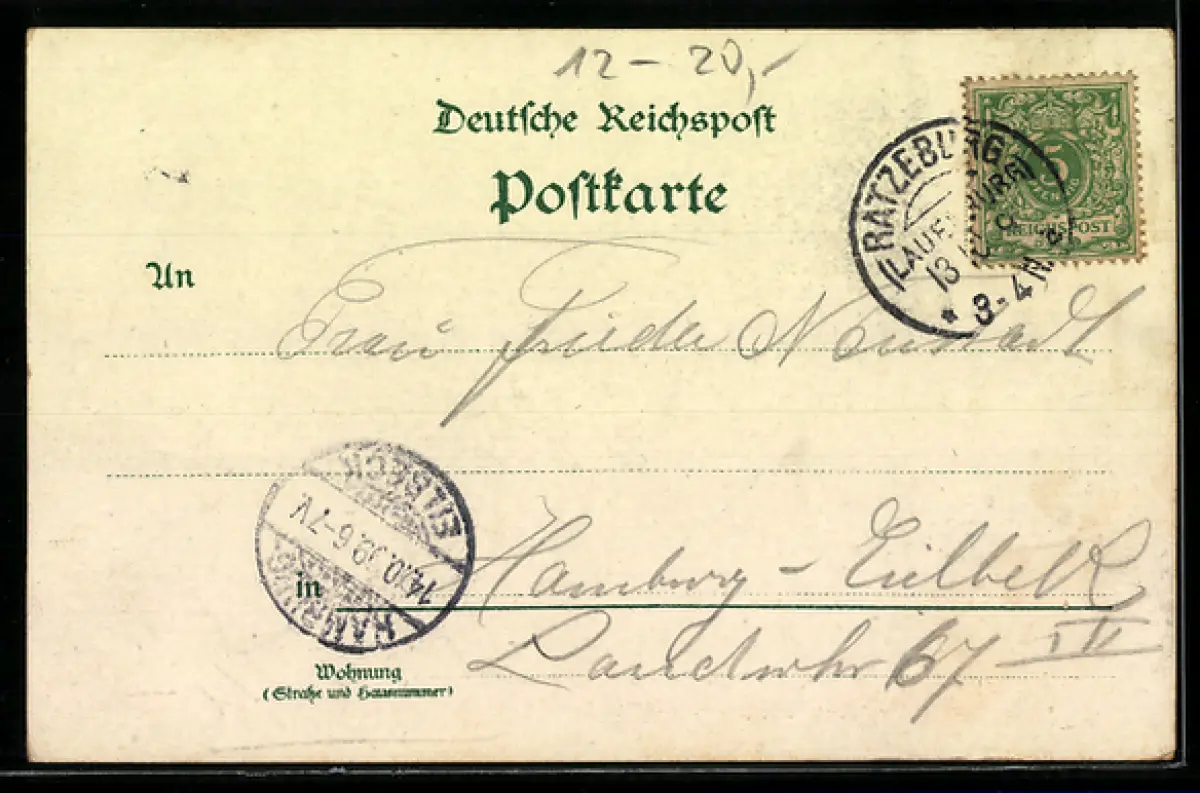 12 – 20,-
Deutsche Reichspost
Postkarte
RATZEBURG
(LAUENBURG)
13
3-4 N.
5
REICHSPOST
An
Frau Frieda Neustadt
EILBECK
14.10.99. 6-7V
HAMBURG
in Hamburg – Eilbek
Landwehr 67 IV
Wohnung
(Straße und Hausnummer)